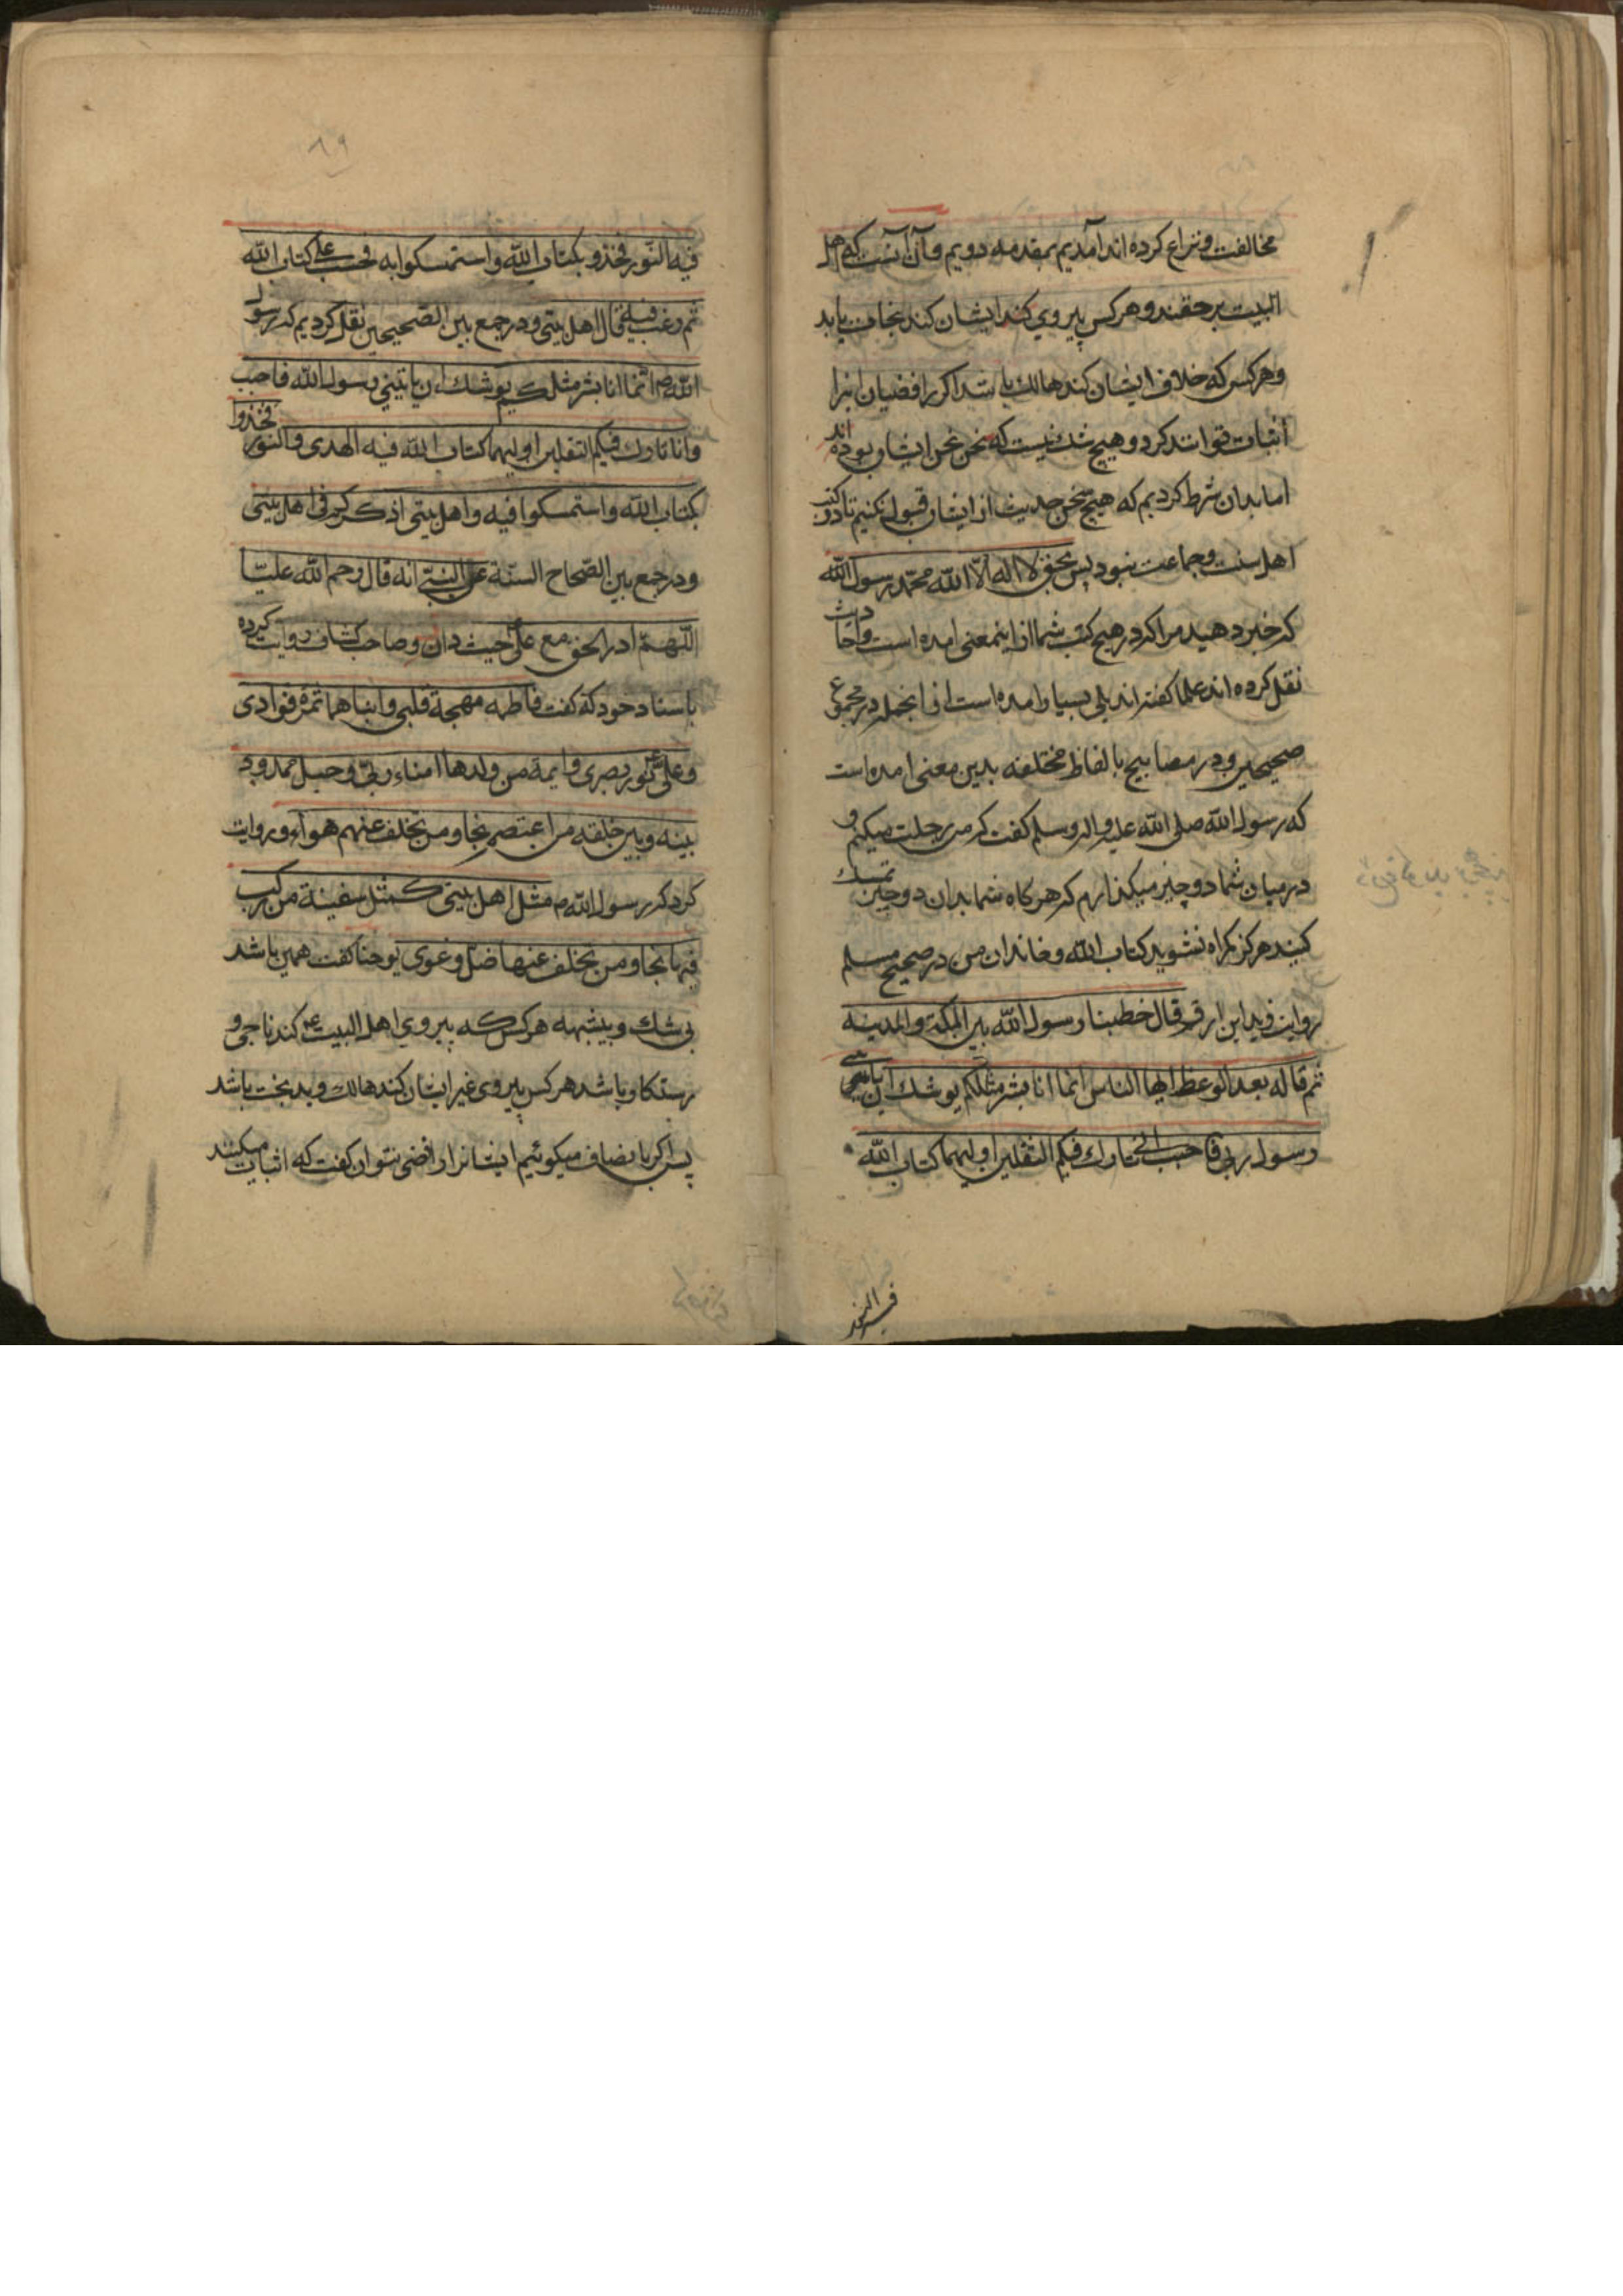 مخالفت ونزاع كرده اند آمديم بمقدمه دويم وآن آنست كه اهل
البيت برحقند وهركس پيروي كند ايشان كند نجات يابد
وهركس كه خلاف ايشان كند هالك باشد اكر رافضيان اينرا
اثبات توانند كرد وهيچ شك نيست كه نحن نحن ايشان بوده اند
اما بدان شرط كرديم كه هيچ سخن حديث از ايشان قبول نكنيم تا در كتب
اهل سنت وجماعت نبود پس بحق لا اله الّا الله محمّد رسول الله
كه خبر دهيد مرا كه در هيچ كتب شما از اينمعنى امده است واحاديث
نقل كرده اند علما كفتند بلى بسيار امده است از انجمله در مجموع
صحيحين ودر مصابيح بالفاظ مختلفه بدين معنى امده است
كه رسول الله صلى الله عليه واله وسلم كفت كه من رحلت ميكنم و
در ميان شما دو چيز ميكذارم كه هركاه شما بدان دو چيز تمسك
كنيد هركز كمراه نشويد كتاب الله وخاندان من در صحيح مسلم
روايت زيد ابن ارقم قال خطبنا رسول الله بين المكة والمدينه
ثم قاله بعد الوعظ ايها الناس انما انا بشر مثلكم يوشك ان ياتيني
رسول ربي فاجب انى تارك فيكم الثقلين اوليهما كتاب الله
فيه النور
٨٩
فيه النّور فخذو بكتاب الله واستمسكوا به فحث على كتاب الله
ثم رغب فيه قال اهل بيتى ودر جمع بين الصّحيحين نقل كرديم كه رسول
الله ص انّما انا بشر مثلكم يوشك ان ياتيني رسول الله فاجب
وانا تارك فيكم الثقلين اوليهما كتاب الله فيه الهدى والنور فخذوا
بكتاب الله واستمسكوا فيه واهل بيتى اذكركم فى اهل بيتى
ودر جمع بين الصّحاح الستّة عن النبىّ انه قال رحم الله عليّا
اللّهمّ ادر الحق مع علىّ حيث دار وصاحب كشاف روايت كرده
باسناد خود كه كفت فاطمه مهجة قلبى وابناهما ثمرة فوادى
وعلى نور بصرى وايمة من ولدها امناء ربّى وحبل ممدود
بينه وبين خلقه من اعتصم نجا ومن تخلف عنهم هوا وروايت
كرد كه رسول الله ص مثل اهل بيتى كمثل سفينة من ركب
فيها نجا ومن تخلف عنها ضلّ وغوى يوحنا كفت همين باشد
بى شك وبيشبهه هركس كه پيروي اهل البيت ع كند ناجى و
رستكار باشد هركس پيروى غير ايشان كند هالك وبدبخت باشد
پس اكر بانصاف ميكوئيم ايشانرا رافضى نتوان كفت كه اثبات ميكنند